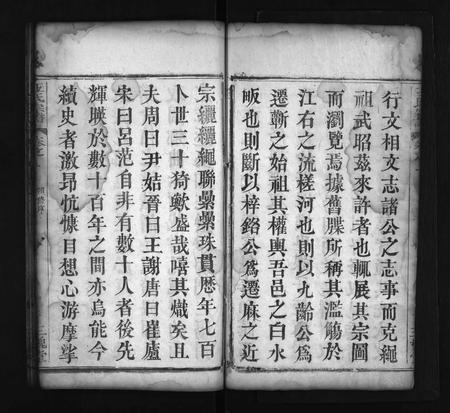 行文相文志諸公之志事而克繩
祖武昭茲來許者也輒展其宗圖
而瀏覽焉據舊牒所稱其濫觴於
江右之流槎河也則以九齡公爲
遷蘄之始祖其權輿吾邑之白水
畈也則斷以梓鉻公爲遷麻之近
宗纚纚繩聯纍纍珠貫歷年七百
卜世三十猗歟盛哉嘻其熾矣且
夫周曰尹姞晉曰王謝唐曰崔廬
宋曰呂范自非有數十人者後先
輝暎於數十百年之間亦烏能令
續史者激昂忼慷目想心游摩挲